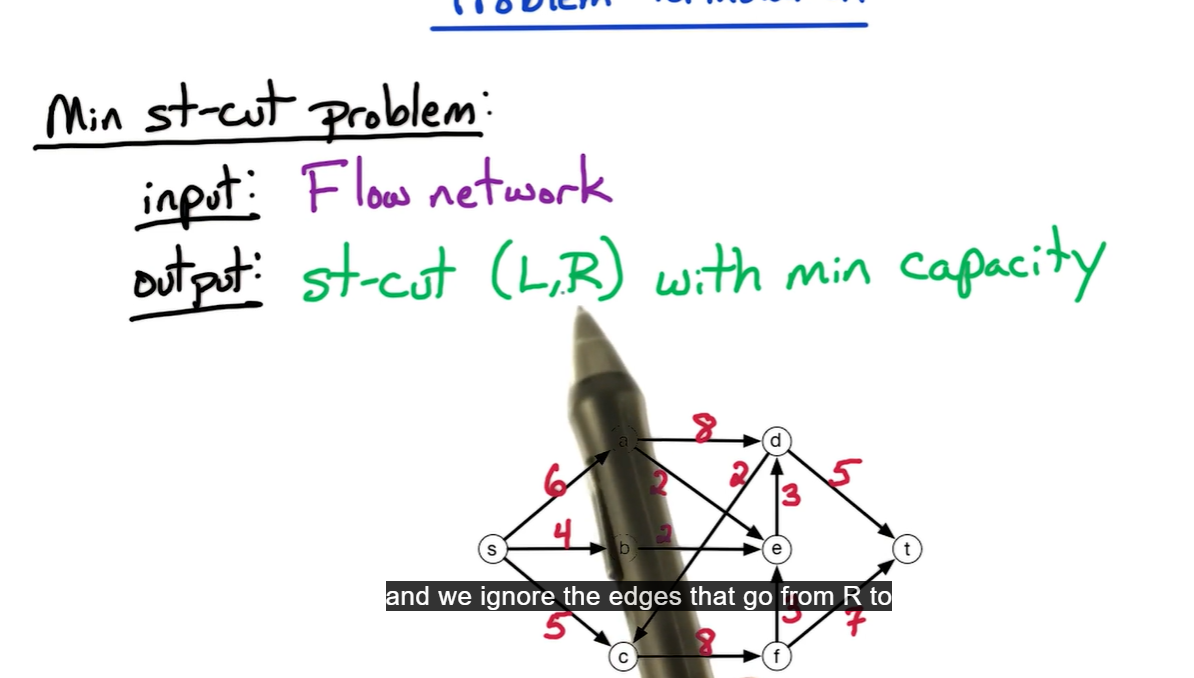 Min st-cut problem:
input: Flow network
output: st-cut (L,R) with min capacity
a 8 d
6 2 2 3 5
s 4 b 2 e t
and we ignore the edges that go from R to
5 3 7
c 8 f